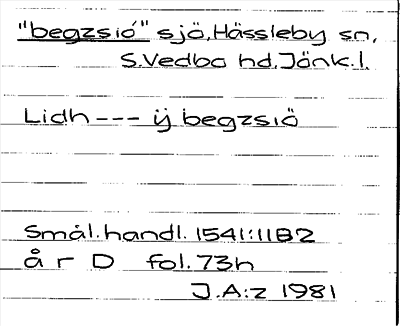 "begzsiö" sjö, Hässleby sn,
S. Vedbo hd, Jönk. l.
Lidh --- ÿ begzsiö
Smål. handl. 1541:11B2
å r D fol. 73h
J.A:z 1981